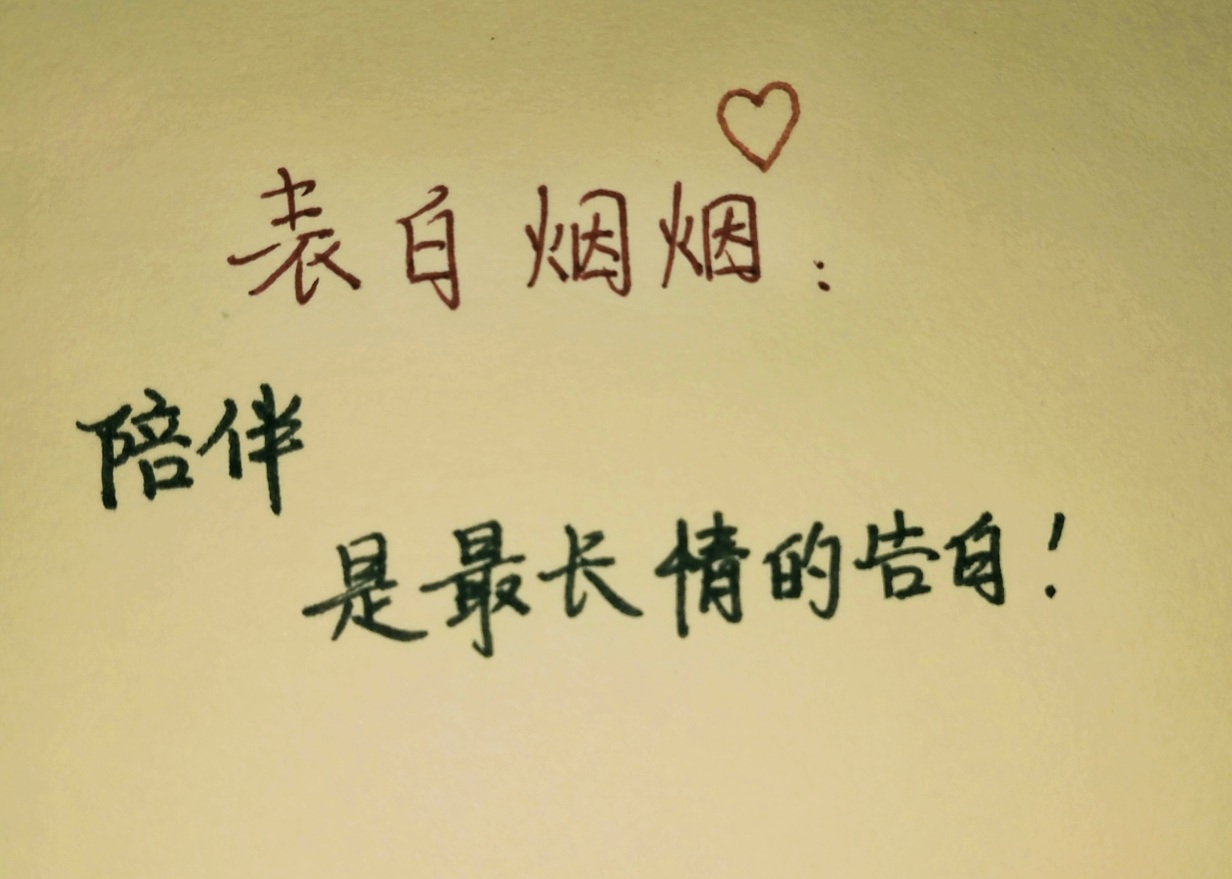 表白烟烟:
陪伴
是最长情的告白!